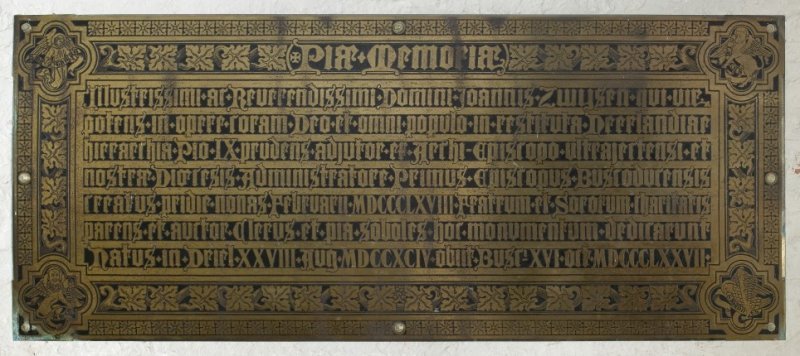 Piæ Memoriæ
Illustrissimi ac Reverendissimi Domini Joannis Zwijsen qui vir
potens in opere coram Deo et omni populo in restituta Neerlandiae
hierarchia Pio IX prudens adjutor et Archi-Episcopo Ultrajectensi et
nostræ Diœcesis Administratore Primus Episcopus Buscoducensis
creatus pridie nonas Februarii MDCCCLXVIII Fratrum et Sororum Charitatis
parens et auctor Clerus et pia soboles hoc monumentum dedicarunt
Natus in Kerkdriel XXVIII Aug MDCCXCIV obiit Busc XVI oct MDCCCLXXVII